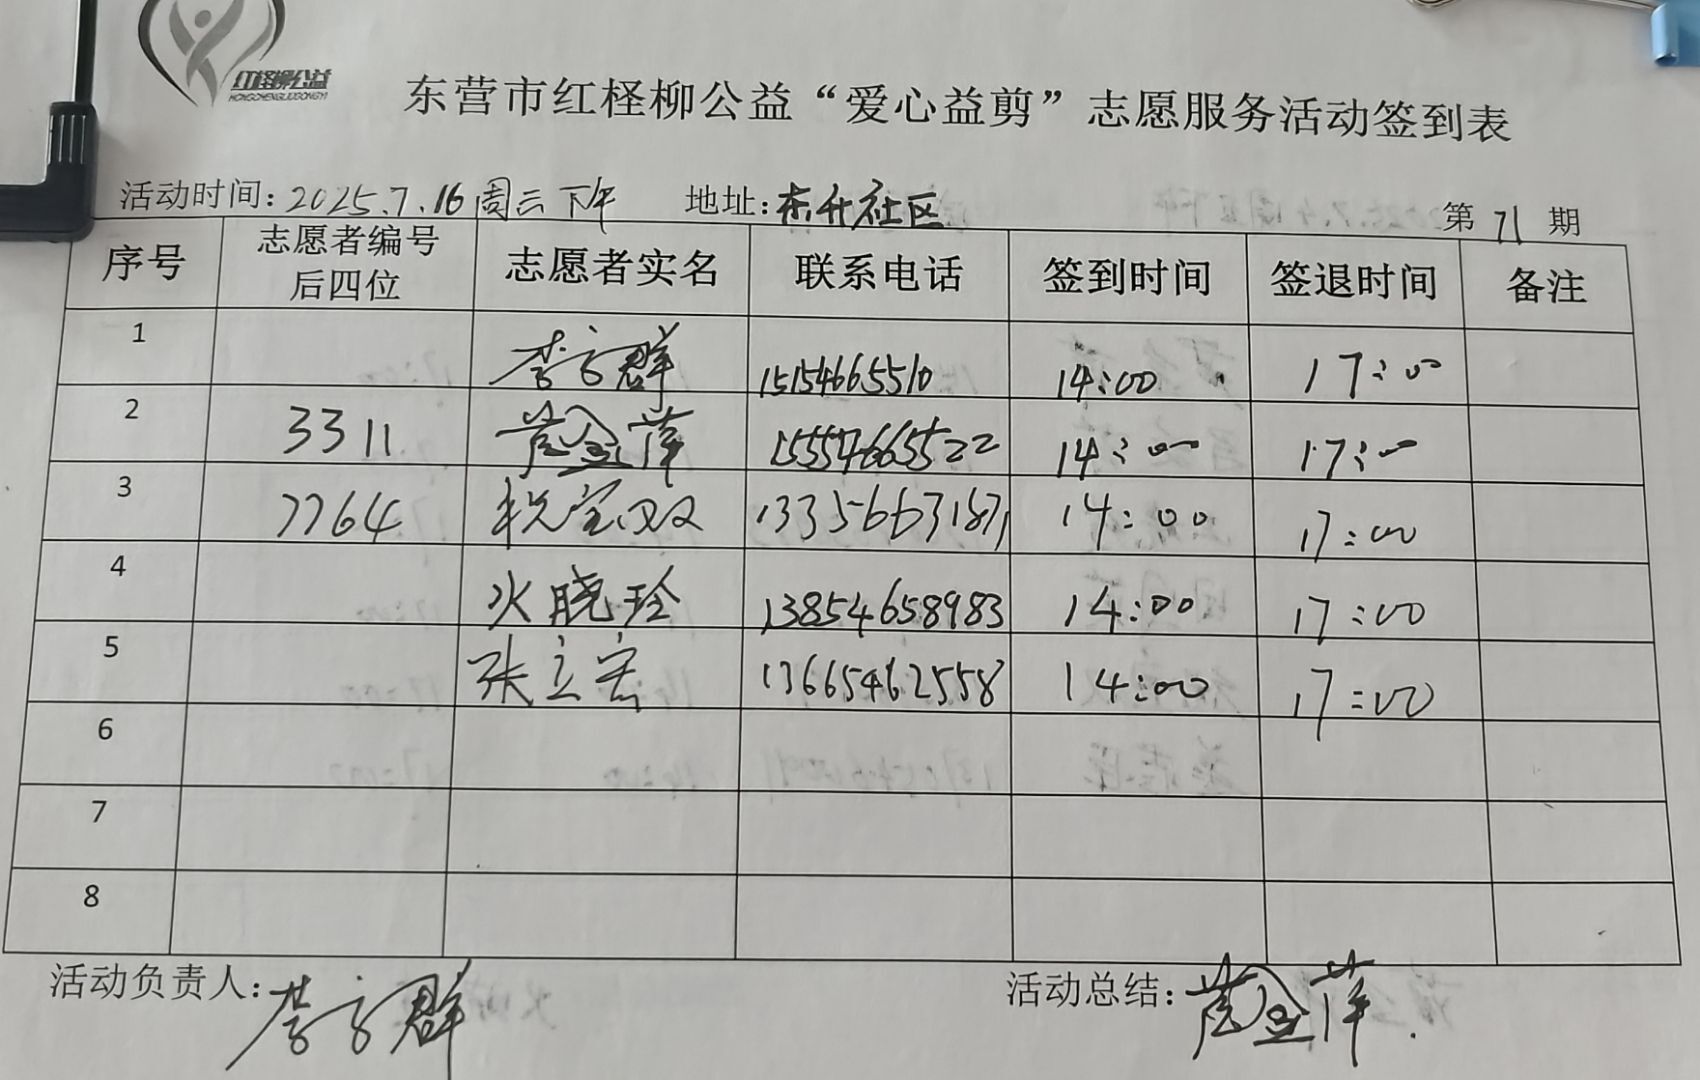 红柽柳公益
HONGCHENGLIUGONGYI
东营市红柽柳公益“爱心益剪”志愿服务活动签到表
活动时间：2025.7.16周三下午 地址：东升社区 第71期
序号 志愿者编号后四位 志愿者实名 联系电话 签到时间 签退时间 备注
1 李方群 15154665510 14:00 17:00
2 3311 黄金萍 15554666522 14:00 17:00
3 7764 税宝双 13356631871 14:00 17:00
4 火晓玲 13854658983 14:00 17:00
5 张立宏 13665462558 14:00 17:00
6
7
8
活动负责人：李方群 活动总结：黄金萍.